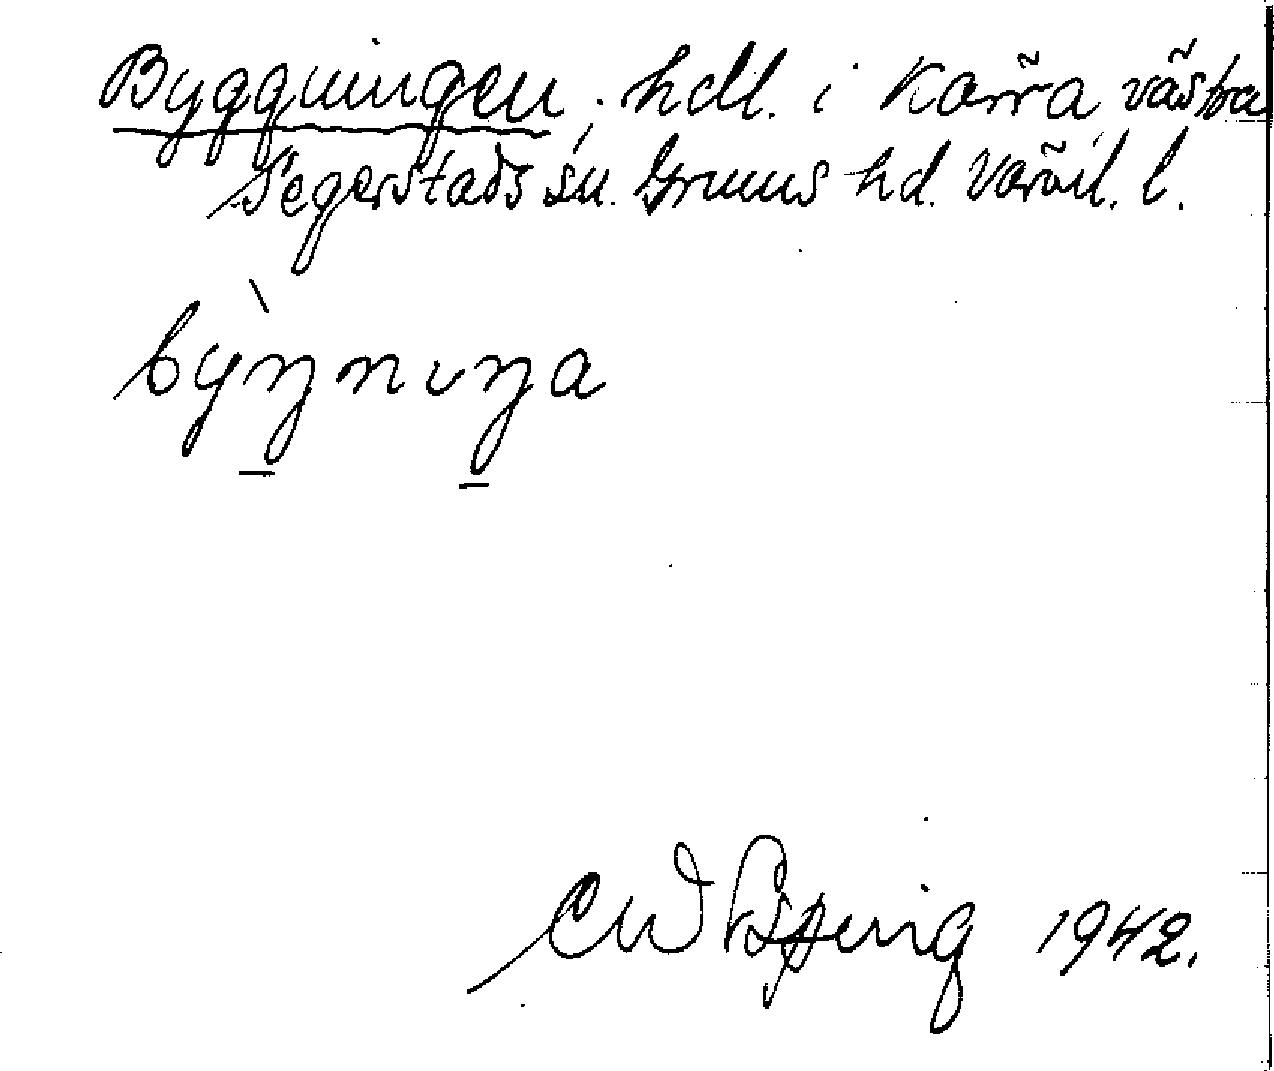 Byggningen, hdl. i Kärra, västra
Segerstads sn. Grums hd. Värml. l.
bỳŋnıŋa
1942.